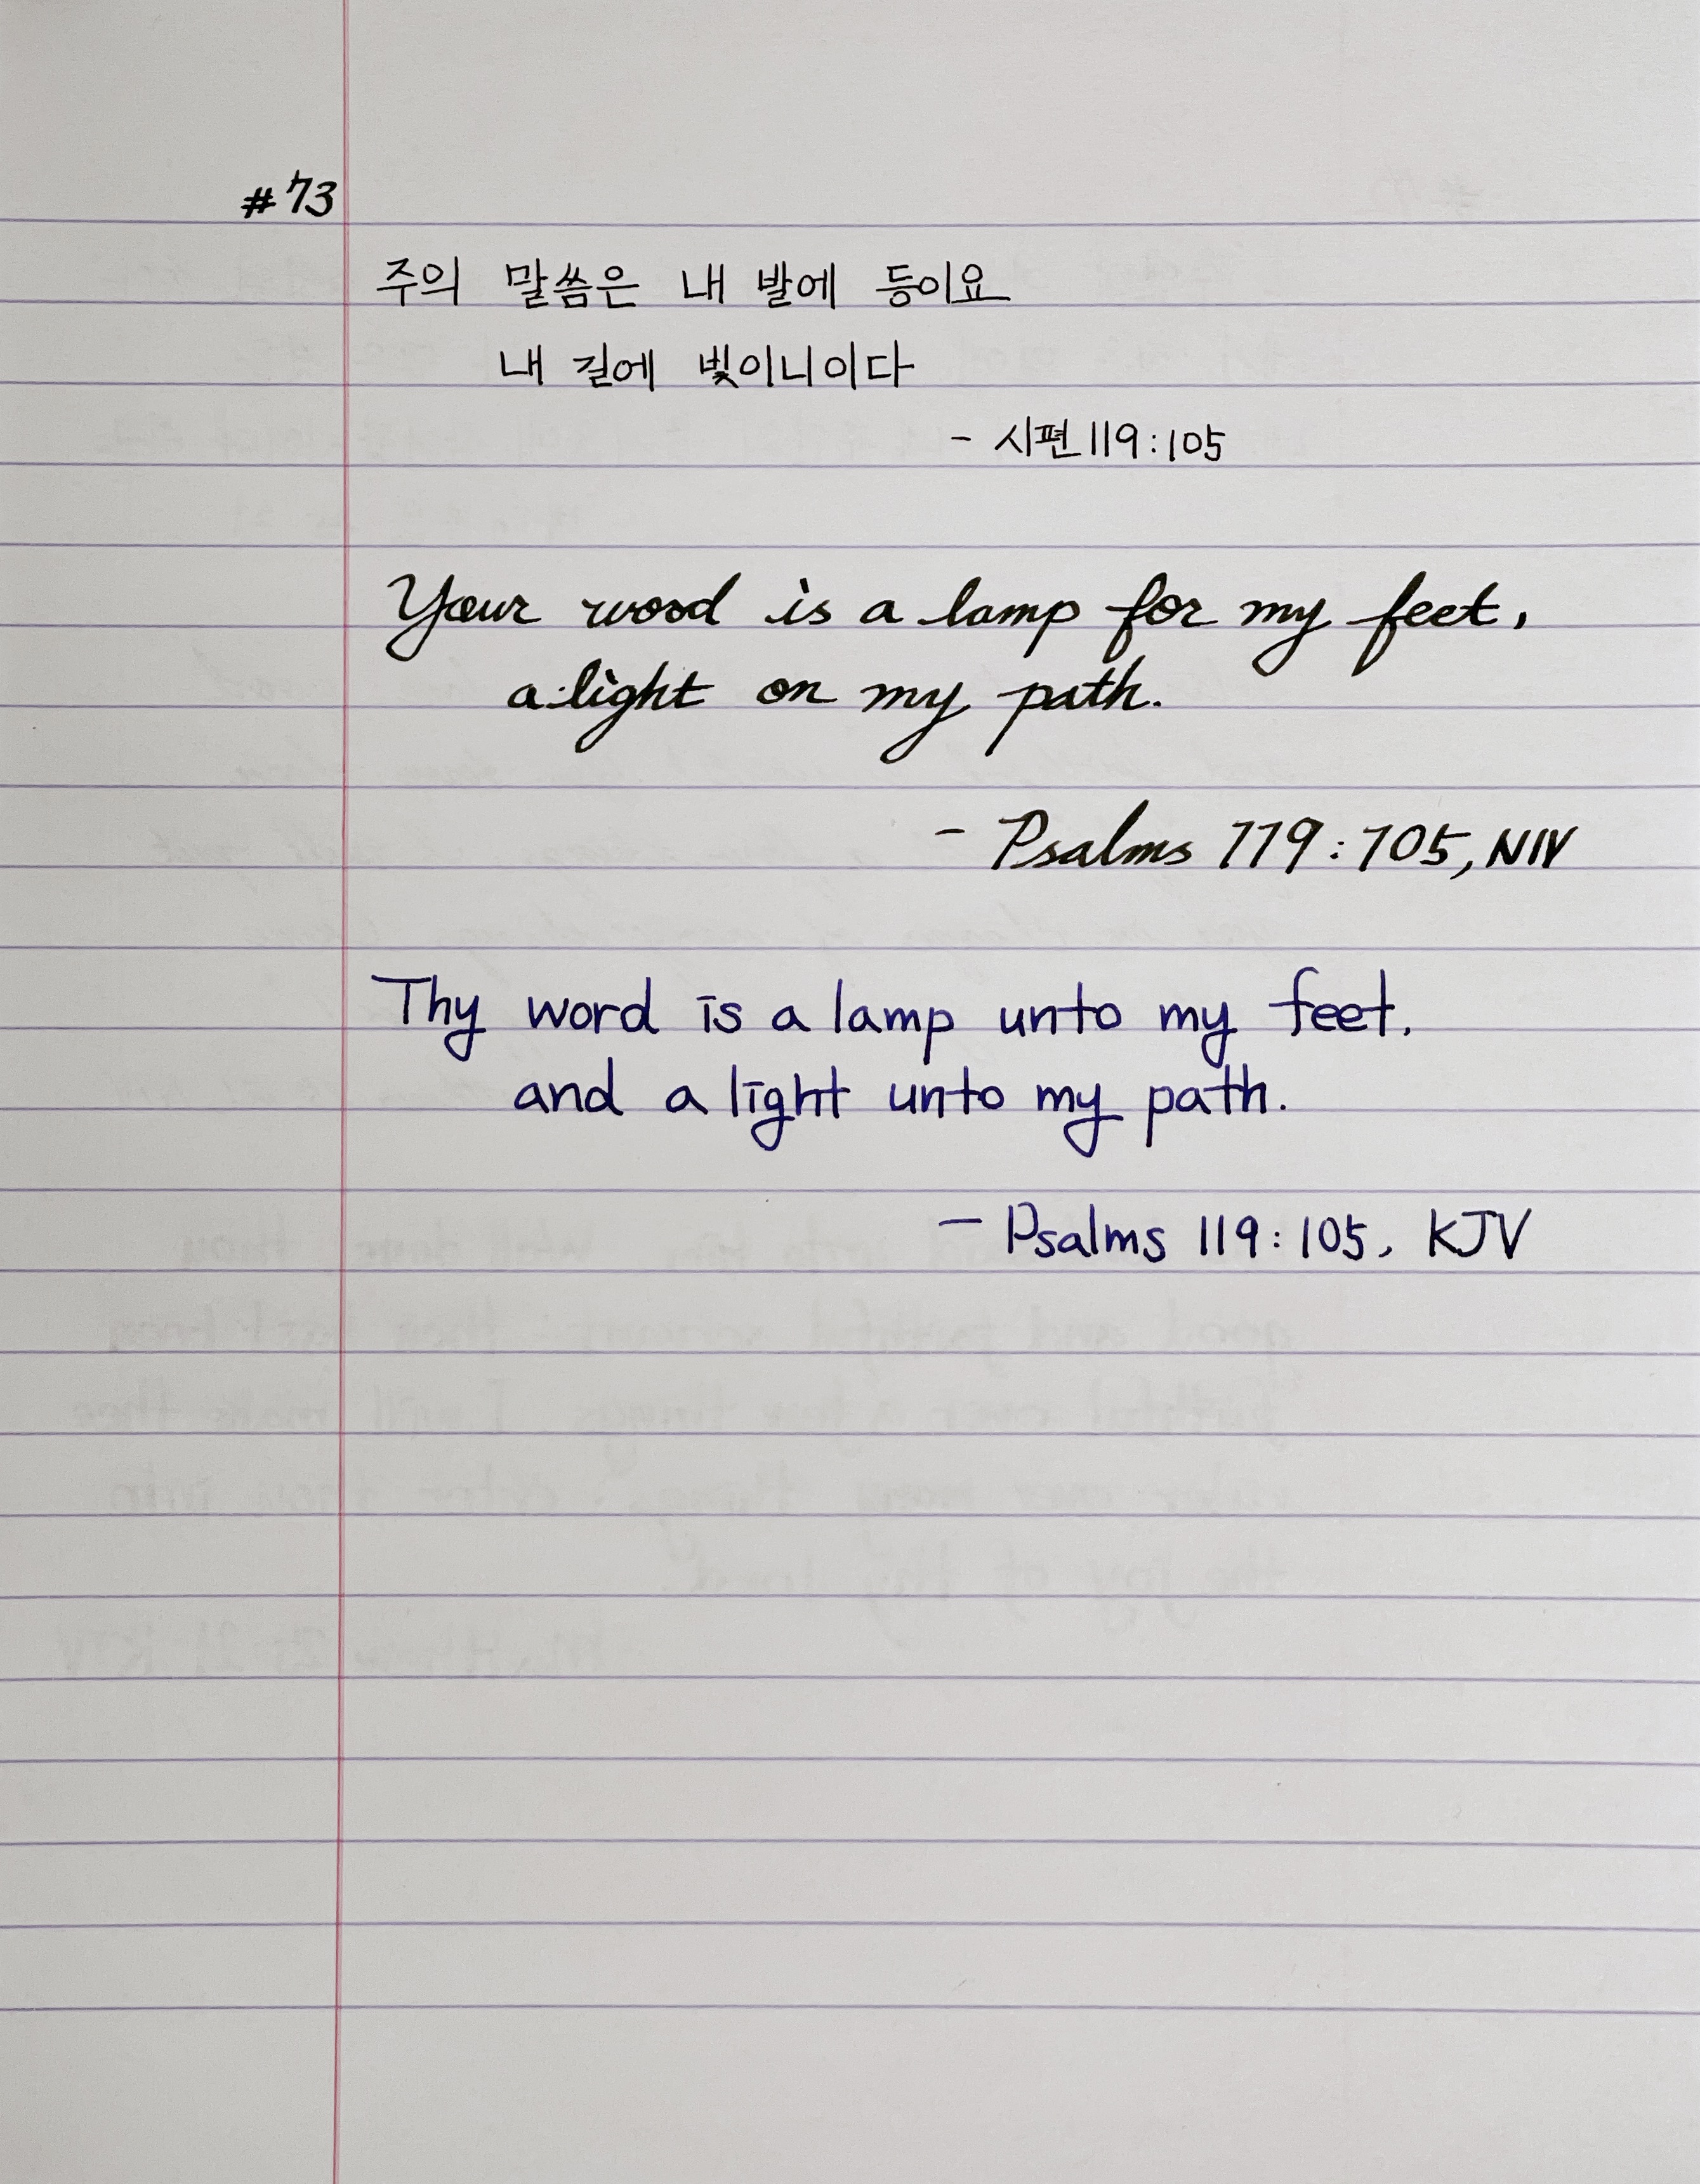 #73
주의 말씀은 내 발에 등이요
내 길에 빛이니이다
- 시편 119:105
Your word is a lamp for my feet,
a light on my path.
- Psalms 119:105, NIV
Thy word is a lamp unto my feet,
and a light unto my path.
- Psalms 119:105, KJV